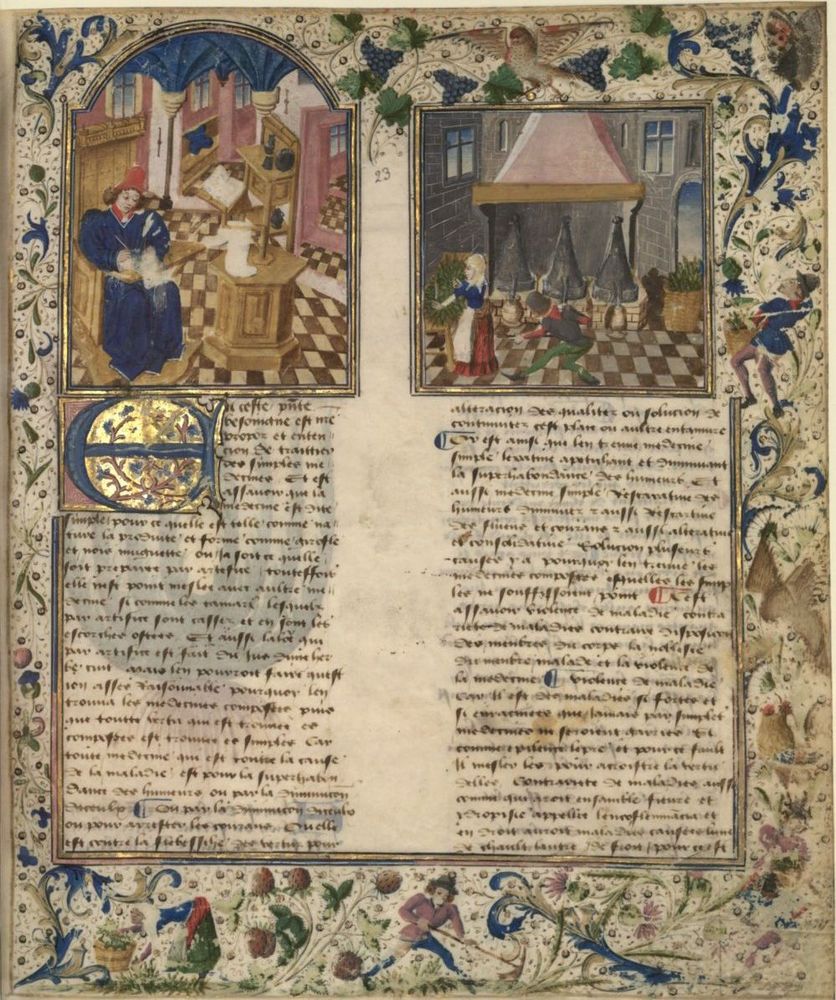 23
En ceste pñte
besoingne est me
propos et enten
cion de traittier
des simples me
decines Et est
assavoir que la
medecine est dite
simple pour ce quelle est telle comme na
ture la produite et forme comme girofle
et nois muguette ou ja soit ce quelle
soit preparee par artefice touteffois
elle nest point meslee avec aultre me
decine si comme les tamarz lesquelz
par artifice sont cassez et en sont les
escorches ostees Et aussi laloe qui
par artifice est fait du jus dune her
be cuit Mais len pouvroit faire quest
ion asses raisonnable pourquoy len
trouva les medecines composees puis
que toutte vertu qui est trouvee es
composees est trouvee es simples Car
toute medecine qui est contre la cause
de la maladie est pour la superhabon
dance des humeurs ou par la diminucion
diceulx Ou par la diminucon diceulx
ou pour arrester les courans Ou elle
est contre la fieblesse des vertus pour
alteracion des qualitez ou solucion de
continuite cest plaie ou aultre entamure
Or est ainsi que len treuve medecine
simple laxative apetichant et diminuant
la superhabondance des humeurs Et
aussi medecine simple restaurative des
humeurs diminuez et aussi restraintive
des fluens et courans et aussi alterative
et consolidative Solucion pluseurs
causes y a pourquoy len treuve les
medecines composees esquelles les simp
les ne souffisoient point Cest
assavoir violence de maladie contra
riete de maladies contraire disposicion
des menbres du corps la noblesse
du menbre malade et la violence de
la medecine Violence de maladie
Car il est des maladies si fortes et
si enracinees que jamais par simples
medecines ne seroient garies Et
comme epilencie lepre et pour ce fault
il mesler les pour acroistre la vertu
delles Contrariete de maladies aussi
comme qui aroit ensamble fievre et
ydropisie appellee leucoflemancia et
en droit auroit maladies causees lune
de chault lautre de froit pour ce est